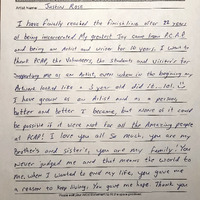 Artist Name: Justus Rose
I have finally reached the finishline after 22 years
of being incarcerated. My greatest Joy came from PCAP
and being an Artist and writer for 10 years. I want to
thank PCAP, the Volunteers, the students and Visitor's for
Supporting me as an Artist, even when in the beginning my
Artwork looked like a 5 year old did it. lol. ☺
I have grown as an Artist and as a person,
better and better I became, but none of it could
be possible if it were not for all the Amazing people
at PCAP! I love you all so much, you are my
Brother's and sister's, you are my family! You
never judged me and that means the world to
me, when I wanted to end my life, you gave me
a reason to keep living. You gave me hope. Thank you